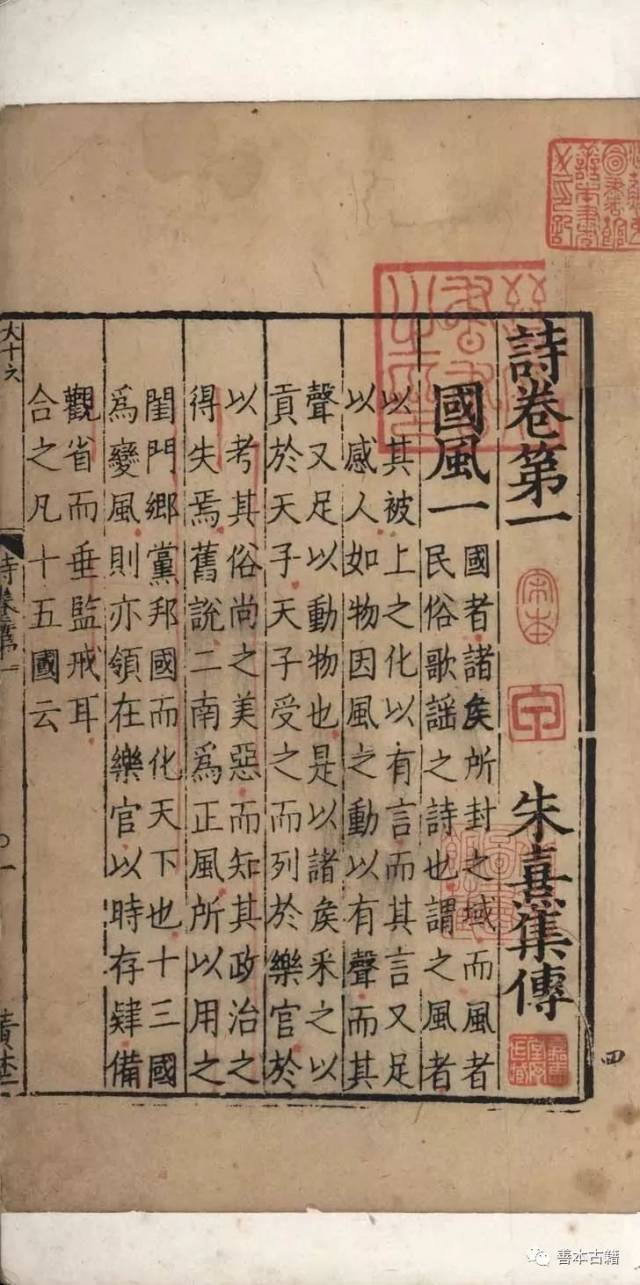 詩卷第一
朱熹集傳
國風一
國者諸矦所封之域而風者
民俗歌謠之詩也謂之風者
以其被上之化以有言而其言又足
以感人如物因風之動以有聲而其
聲又足以動物也是以諸矦采之以
貢於天子天子受之而列於樂官於
以考其俗尚之美惡而知其政治之
得失焉舊說二南爲正風所以用之
閨門鄉黨邦國而化天下也十三國
爲變風則亦領在樂官以時存肄備
觀省而垂監戒耳
合之凡十五國云
大十六
詩卷第一
一
四
善本古籍